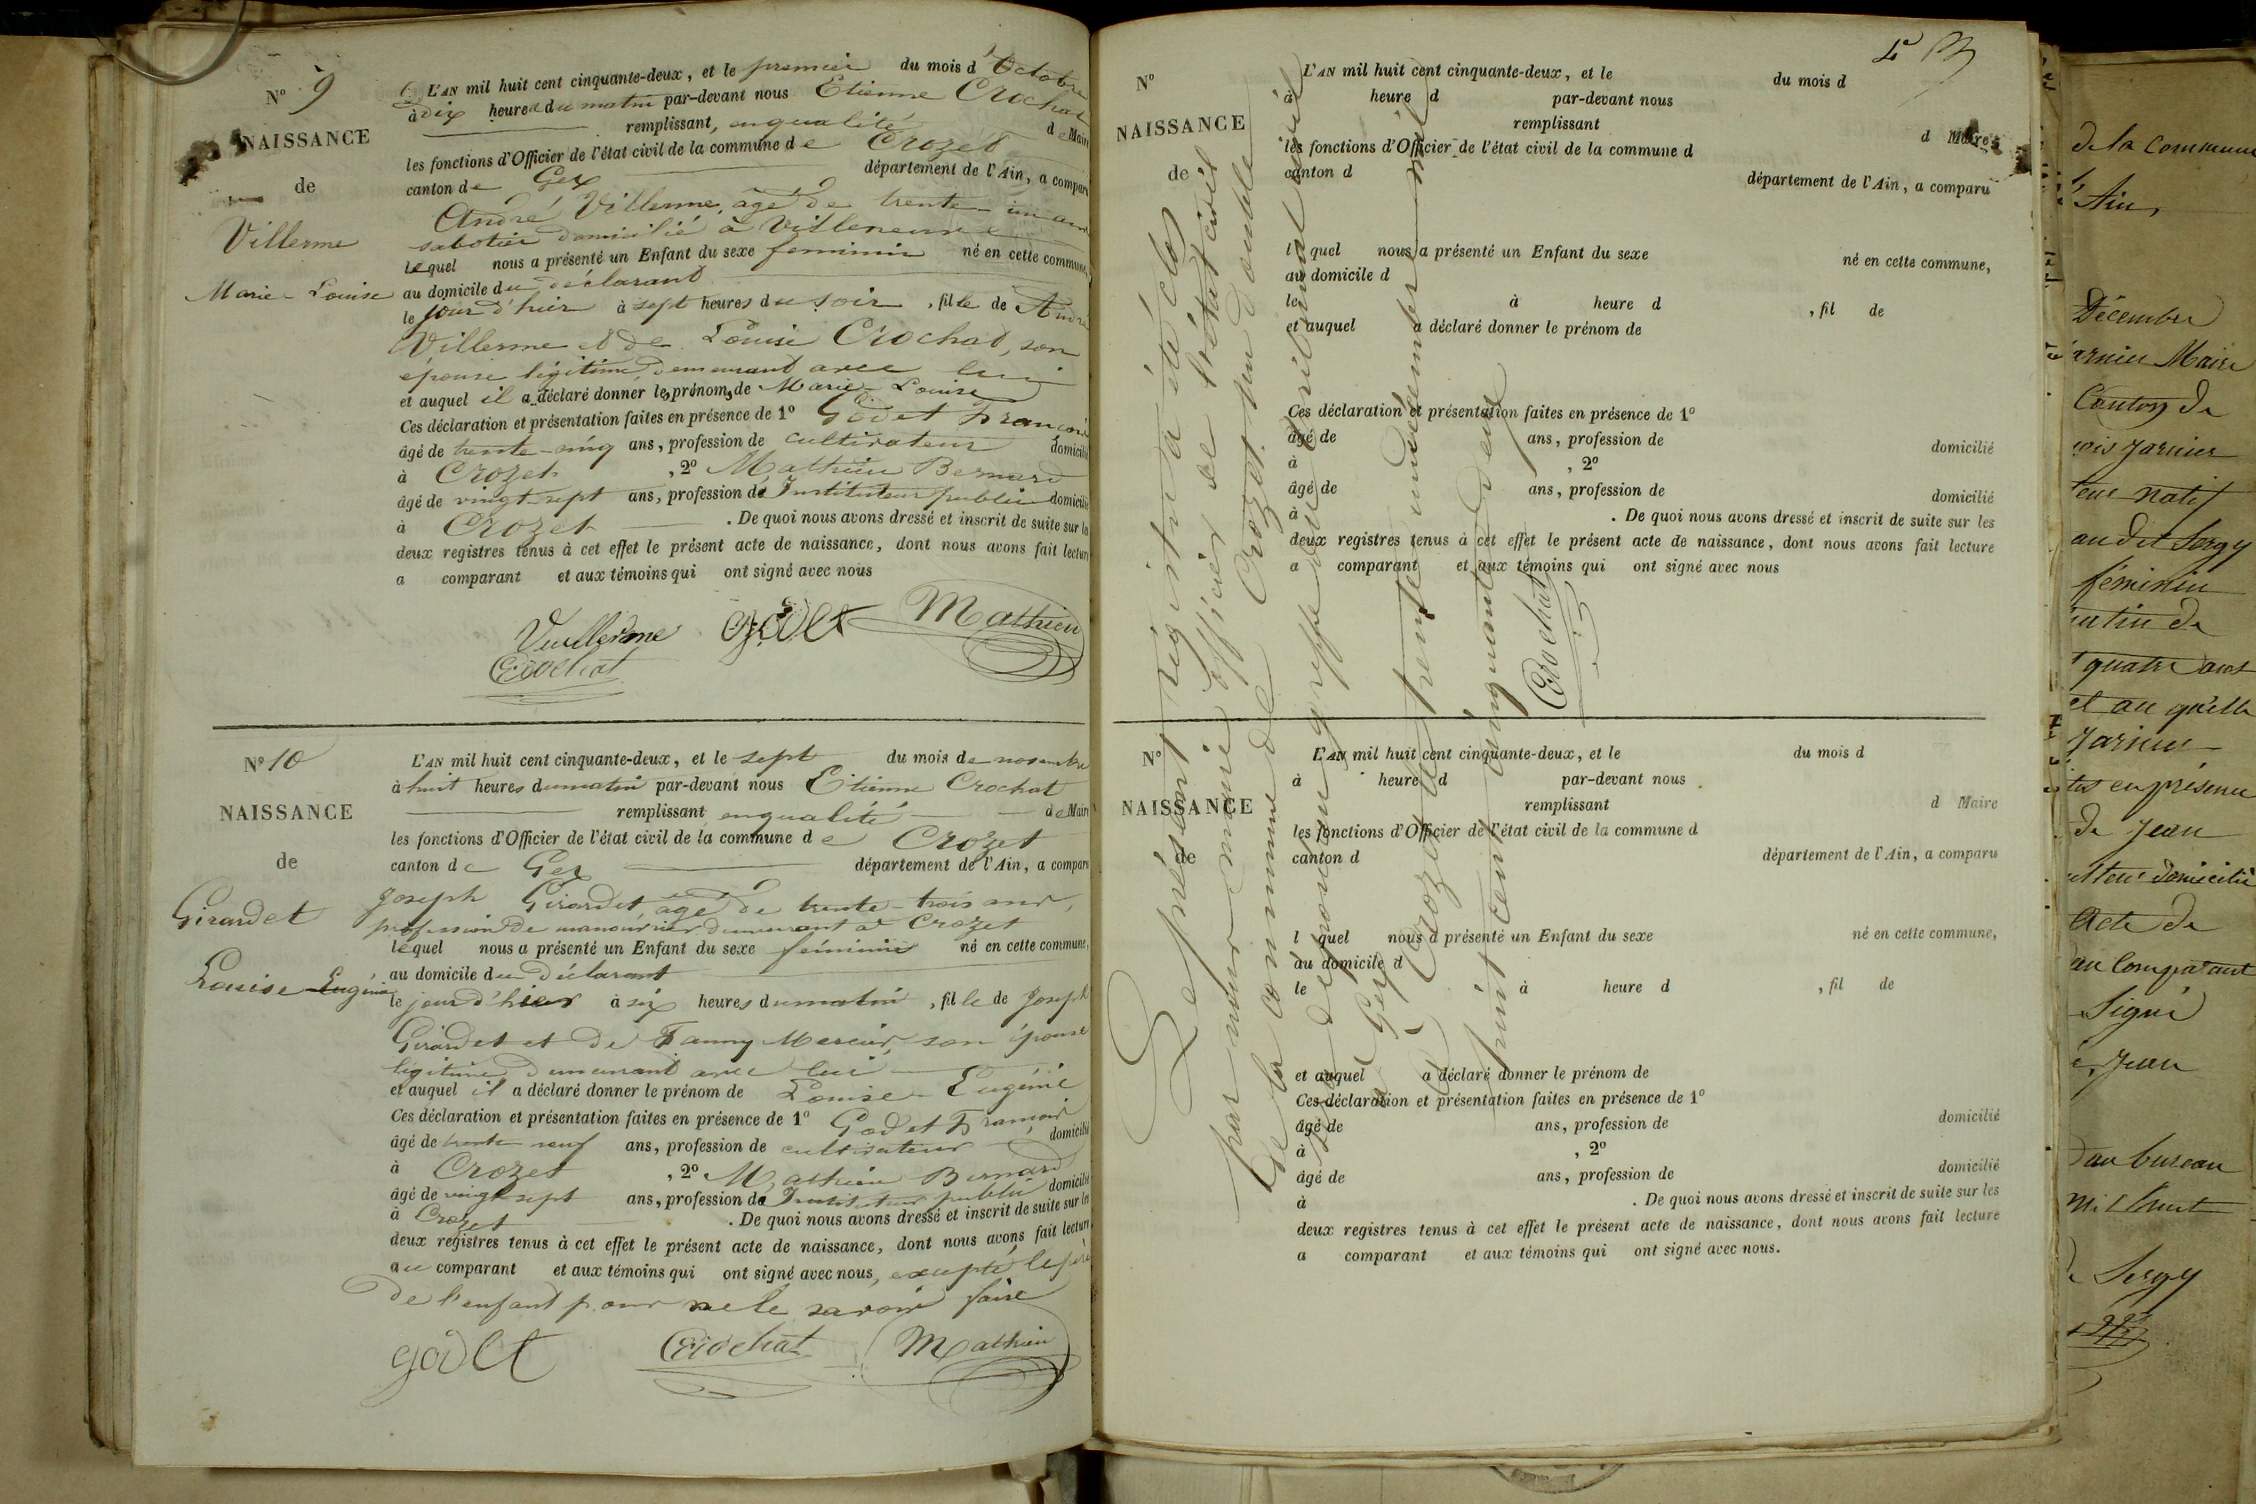 N° 9
NAISSANCE
de
Villerme
Marie-Louise
L'AN mil huit cent cinquante-deux, et le premier du mois d'Octobre
à dix heures du matin par-devant nous Etienne Crochat
remplissant, en qualité de Maire
les fonctions d'Officier de l'état civil de la commune de Crozet
canton de Gex département de l'Ain, a comparu
André Villerme, âgé de trente-un ans
sabotier domicilié à Villeneuve
lequel nous a présenté un Enfant du sexe feminin né en cette commune,
au domicile du déclarant
le jour d'hier à sept heures du soir, fille de André
Villerme et de Louise Crochat, son
épouse légitime demeurant avec lui
et auquel il a déclaré donner les prénoms de Marie-Louise
Ces déclaration et présentation faites en présence de 1° Godet François
âgé de trente-neuf ans, profession de cultivateur domicilié
à Crozet, 2° Mathieu Bernard
âgé de vingt sept ans, profession de Instituteur public domicilié
à Crozet. De quoi nous avons dressé et inscrit de suite sur les
deux registres tenus à cet effet le présent acte de naissance, dont nous avons fait lecture
a comparant et aux témoins qui ont signé avec nous
Vuillerme Godet Mathieu
Crochat
N° 10
NAISSANCE
de
Girardet
Louise-Eugénie
L'AN mil huit cent cinquante-deux, et le sept du mois de novembre
à huit heures du matin par-devant nous Etienne Crochat
remplissant en qualité de Maire
les fonctions d'Officier de l'état civil de la commune de Crozet
canton de Gex département de l'Ain, a comparu
Joseph Girardet âgé de trente-trois ans,
profession de manouvrier demeurant à Crozet
lequel nous a présenté un Enfant du sexe féminin né en cette commune,
au domicile du déclarant
le jour d'hier à six heures du matin, fille de Joseph
Girardet et de Fanny Mercier, son épouse
légitime demeurant avec lui
et auquel il a déclaré donner le prénom de Louise-Eugénie
Ces déclaration et présentation faites en présence de 1° Godet François
âgé de trente neuf ans, profession de cultivateur domicilié
à Crozet, 2° Mathieu Bernard
âgé de vingt sept ans, profession de Instituteur public domicilié
à Crozet. De quoi nous avons dressé et inscrit de suite sur les
deux registres tenus à cet effet le présent acte de naissance, dont nous avons fait lecture
au comparant et aux témoins qui ont signé avec nous, excepté le père
de l'enfant pour ne le savoir faire
Godet Crochat Mathieu
N°
NAISSANCE
de
L'AN mil huit cent cinquante-deux, et le du mois d
à heure d par-devant nous
remplissant d Maire
les fonctions d'Officier de l'état civil de la commune d
canton d département de l'Ain, a comparu
l quel nous a présenté un Enfant du sexe né en cette commune,
au domicile d
le à heure d, fil de
et auquel a déclaré donner le prénom de
Ces déclaration et présentation faites en présence de 1°
âgé de ans, profession de domicilié
à, 2°
âgé de ans, profession de domicilié
à. De quoi nous avons dressé et inscrit de suite sur les
deux registres tenus à cet effet le présent acte de naissance, dont nous avons fait lecture
a comparant et aux témoins qui ont signé avec nous
N°
NAISSANCE
de
L'AN mil huit cent cinquante-deux, et le du mois d
à heure d par-devant nous
remplissant d Maire
les fonctions d'Officier de l'état civil de la commune d
canton d département de l'Ain, a comparu
l quel nous a présenté un Enfant du sexe né en cette commune,
au domicile d
le à heure d, fil de
et auquel a déclaré donner le prénom de
Ces déclaration et présentation faites en présence de 1°
âgé de ans, profession de domicilié
à, 2°
âgé de ans, profession de domicilié
à. De quoi nous avons dressé et inscrit de suite sur les
deux registres tenus à cet effet le présent acte de naissance, dont nous avons fait lecture
a comparant et aux témoins qui ont signé avec nous.
Le présent régistre a été clos
par nous maire officier de l'état civil
de la commune de Crozet. un double
sera déposé au greffe du tribunal civil
à Gex
à Crozet le trente un décembre mil
huit cent cinquante deux
Crochat
de la commune
l'Ain,
Décembre
Maire
Canton de
natif
au dit Sergy
féminin
matin de
quatre ans
et au quelle
en présence
de Jean
domicilié
Acte de
au Comparant
Signé
Jean
au bureau
mil huit
de Sergy